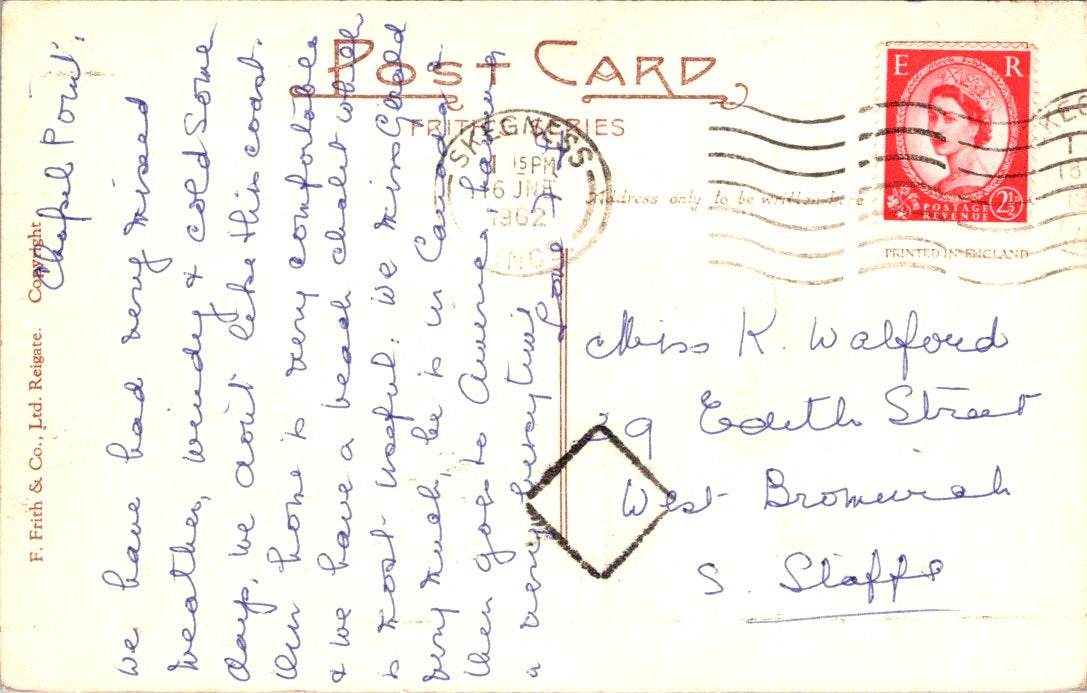 POST CARD
FRITH SERIES
Address only to be written here
E R
POSTAGE
REVENUE
2½D
PRINTED IN ENGLAND
SKEGNESS
15 PM
16 JNE
1962
LINCS
Chapel Point.
We have had very mixed
weather, windy & cold some
days, we don't like this coast.
This home is very comfortable
& we have a beach chalet which
is most useful. We miss Gerald
very much, he is in Canada &
then goes to America having
a very busy time
Love
Miss K. Walford
39 Edith Street
West Bromwich
S. Staffs
F. Frith & Co., Ltd. Reigate. Copyright